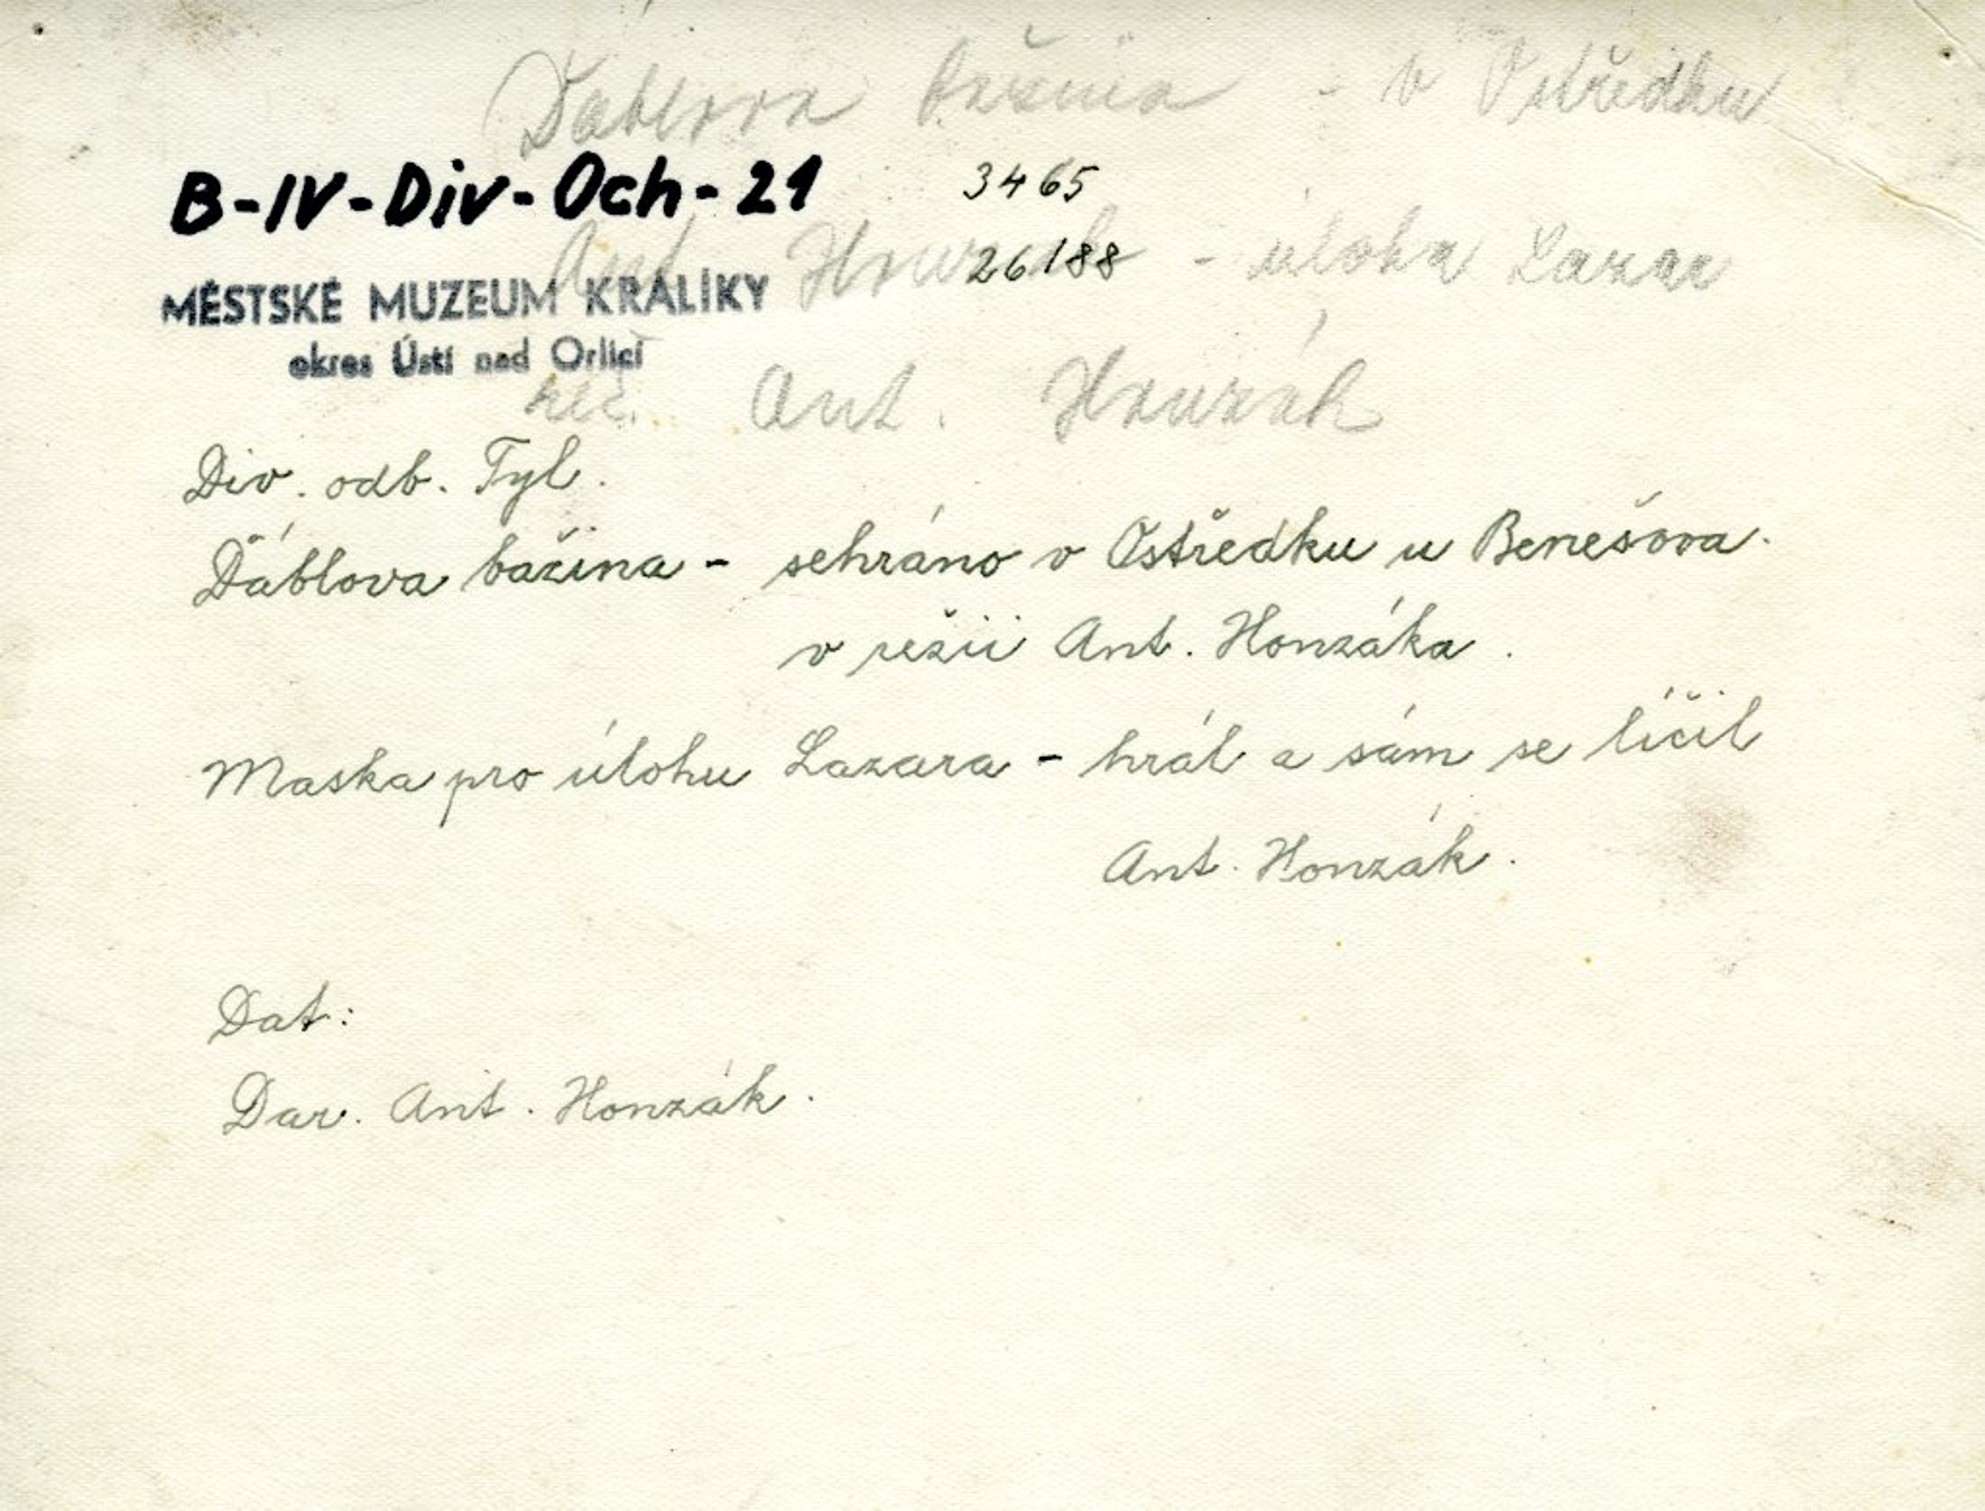 Ďáblova bažina - v Ostředku
B-IV-Div-Och-21 3465
Ant. Honzák - úloha Lazar
26188
MĚSTSKÉ MUZEUM KRÁLÍKY
okres Ústí nad Orlicí
rež. Ant. Honzák
Div. odb. Tyl.
Ďáblova bažina - sehráno v Ostředku u Benešova.
v režii Ant. Honzáka.
Maska pro úlohu Lazara - hrál a sám se líčil
Ant. Honzák.
Dat:
Dar. Ant. Honzák.